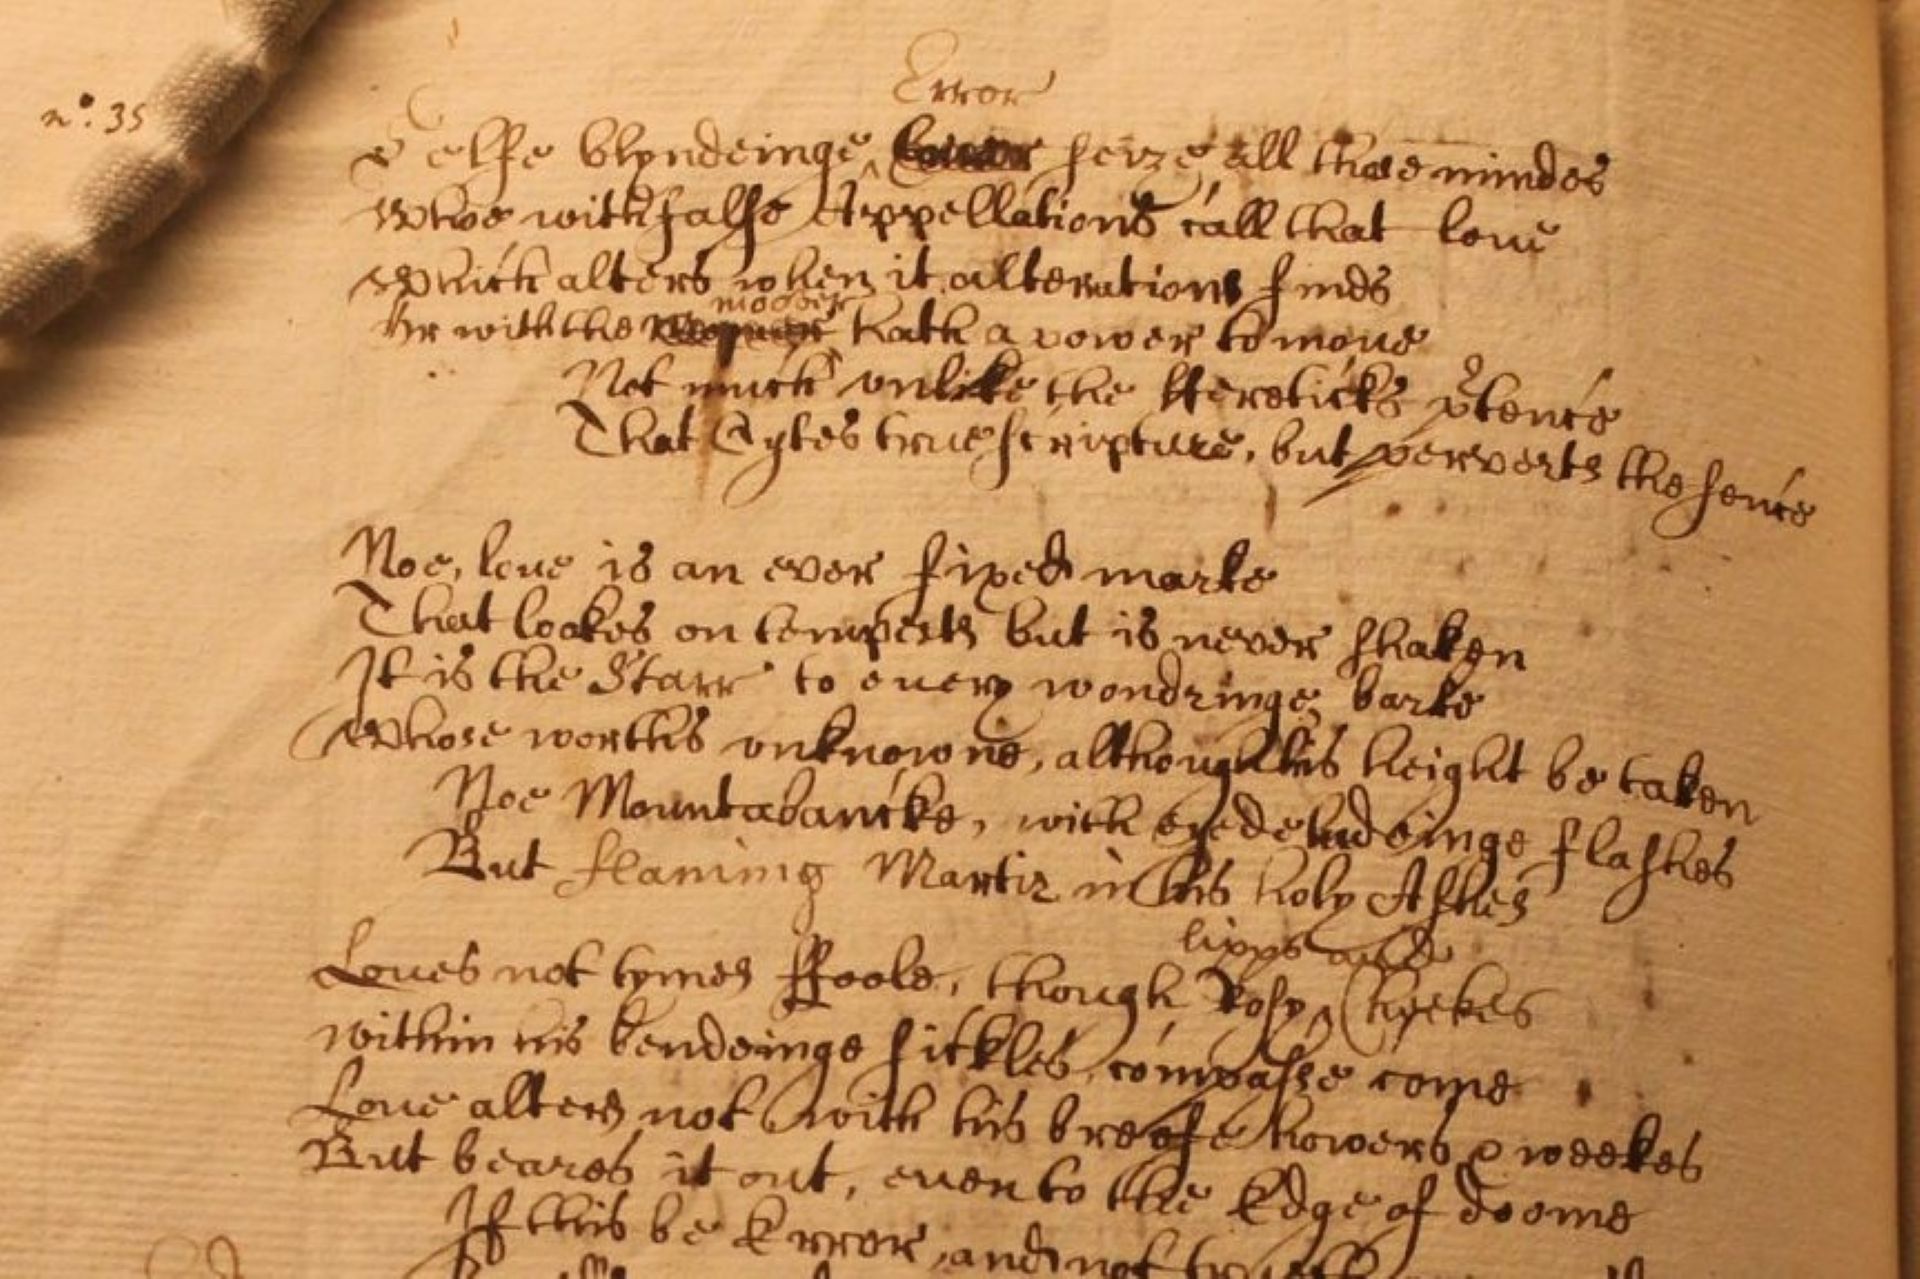 nº. 35
Error
Selfe blyndeinge seize all those mindes
Whoe with false Appellations call that loue
Which alters when it alterations finds
moover
Or with the hath a power to moue
Not much vnlike the Hereticks ptence
That Cytes true scripture, but perverts the sence
Noe, loue is an ever fixed marke
That lookes on tempests but is never shaken
It is the Starr to euery wondringe barke
Whose worths vnknowne, although his height be taken
Noe Mountabancke, with eyedeludeinge flashes
But flaming Martir in his holy Ashes
lipps and
Loues not tymes ffoole, though Rosy ‸ Cheekes
within his bendeinge sickles compasse come
Loue alters not with his breefe howers & weekes
But beares it out, even to the Edge of doome
If this be Error, and not